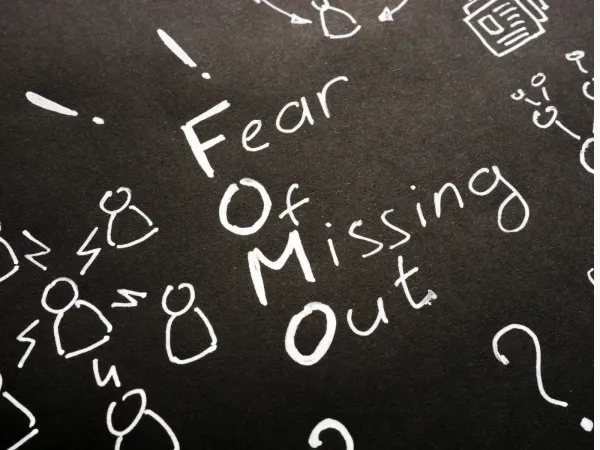 !
!
Fear
Of
Missing
Out
?
?